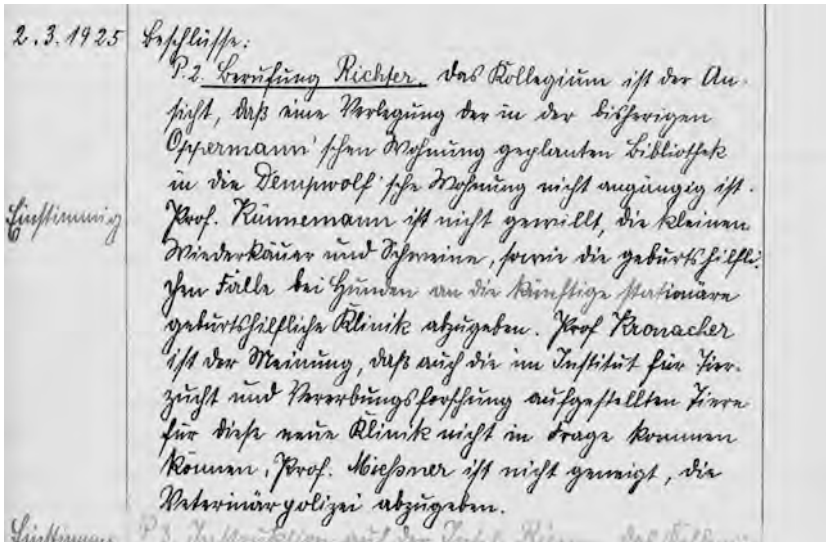 2.3.1925 Beschlüsse:
P. 2. Berufung Richter. Das Kollegium ist der An-
sicht, daß eine Verlegung der in der bisherigen
Oppermann'schen Wohnung geplanten Bibliothek
in die Dempwolf'sche Wohnung nicht angängig ist.
Einstimmig
Prof. Künnemann ist nicht gewillt, die kleinen
Wiederkäuer und Schweine, sowie die geburtshilfli-
chen Fälle bei Hunden an die künftige stationäre
geburtshilfliche Klinik abzugeben. Prof Kronacher
ist der Meinung, daß auch die im Institut für Tier-
zucht und Vererbungsforschung aufgestellten Tiere
für diese neue Klinik nicht in Frage kommen
können, Prof. Miessner ist nicht geneigt, die
Veterinärpolizei abzugeben.